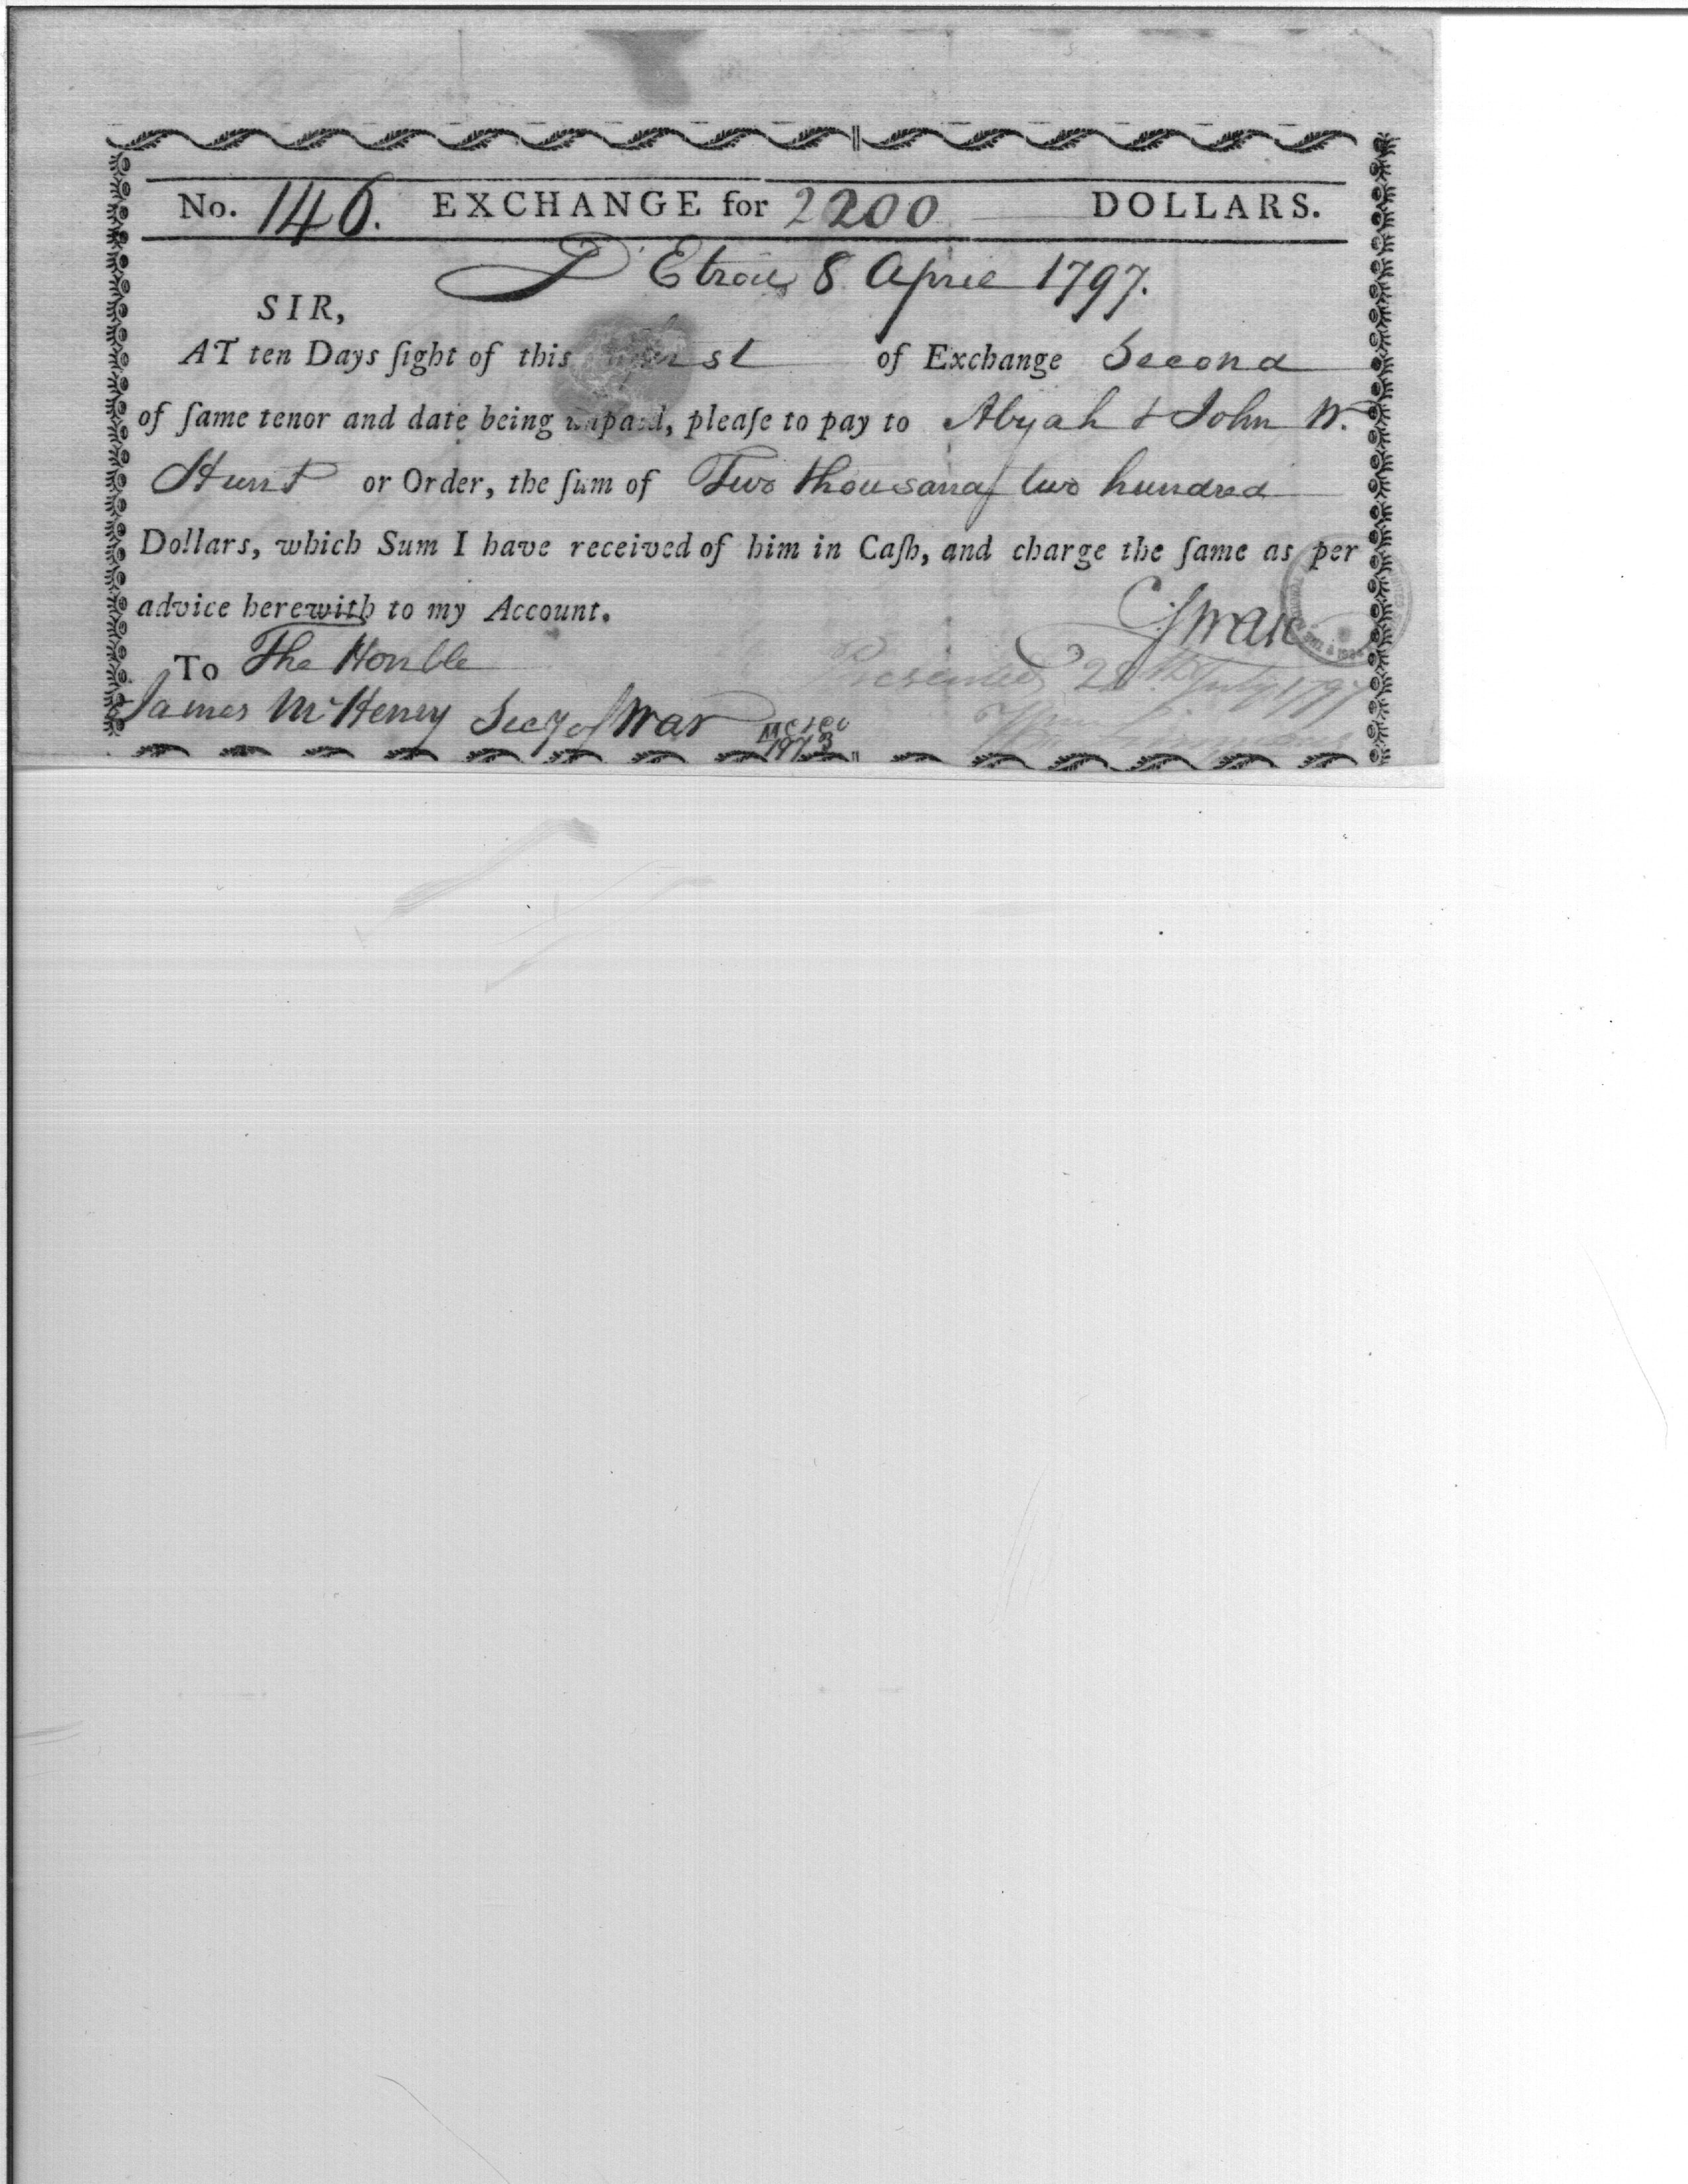 No. 146. EXCHANGE for 2200 DOLLARS.
D'Etroit 8 April 1797.
SIR,
AT ten Days ſight of this first of Exchange Second
of ſame tenor and date being unpaid, pleaſe to pay to Abijah & John W.
Hunt or Order, the ſum of Two thousand two hundred
Dollars, which Sum I have received of him in Caſh, and charge the ſame as per
advice herewith to my Account.
C. Swan
To The Honble
James McHenry Secy of War
Presented 28th July 1797